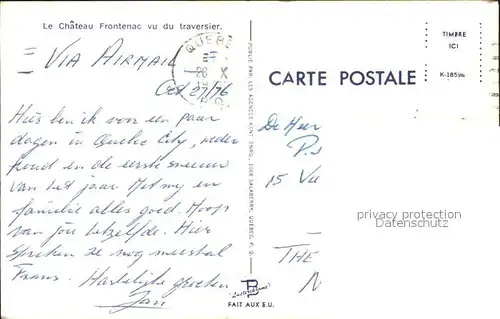 Le Château Frontenac vu du traversier.
VIA AIRMAIL
QUEBE
28 X
Oct 27/76
Hier ben ik voor een paar
dagen in Quebec City,
koud en de eerste sneeuw
van het jaar Met my en
familie alles goed. Hoop
van jou hetzelfde. Hier
spreken ze nog meestal
Frans. Hartelijke groeten
Jan
PUBLIÉ PAR LES AGENCES KENT ENRG. QUÉBEC, P.Q.
CARTE POSTALE
TIMBRE
ICI
K-185
De Heer
P.
15 Vu
privacy protection
Datenschutz
THE
N
FAIT AUX E.U.